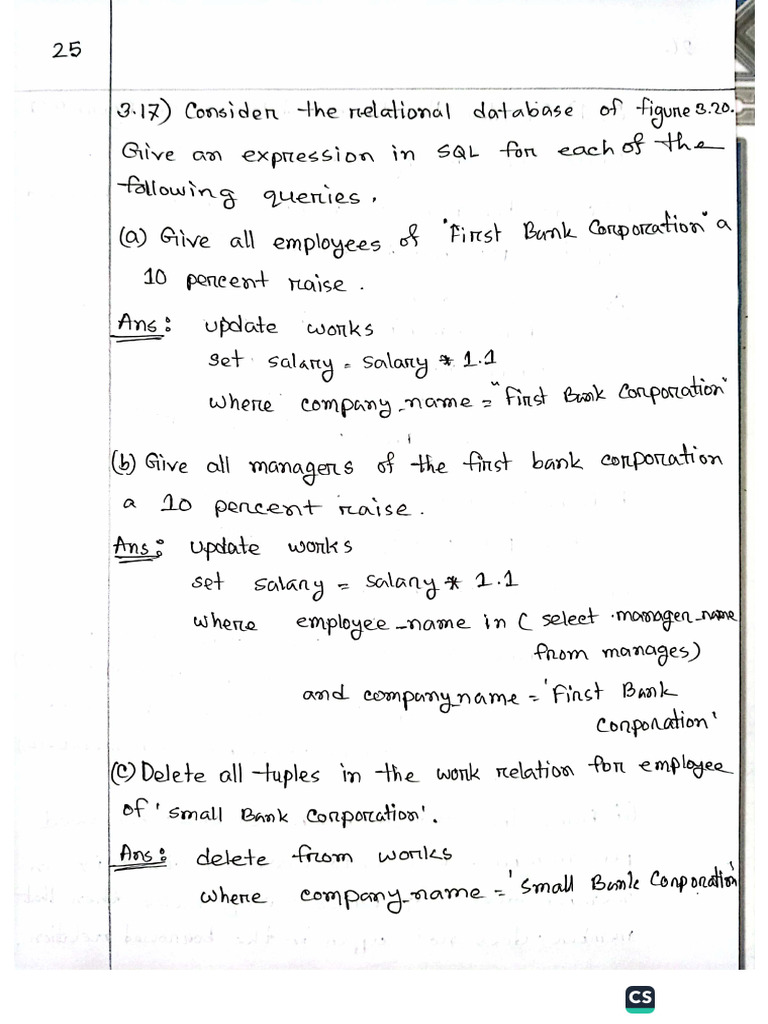 25
3.17) Consider the relational database of figure 3.20.
Give an expression in SQL for each of the
following queries.
(a) Give all employees of "First Bank Corporation" a
10 percent raise.
Ans: update works
set salary = salary * 1.1
where company_name = "First Bank Corporation"
(b) Give all managers of the first bank corporation
a 10 percent raise.
Ans: update works
set salary = salary * 1.1
where employee_name in ( select manager_name
from manages)
and company_name = 'First Bank
Corporation'
(C) Delete all tuples in the work relation for employee
of 'Small Bank Corporation'.
Ans: delete from works
where company_name = 'Small Bank Corporation'
CS